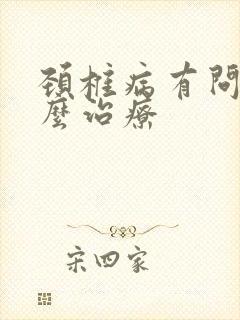 頚椎病有問
麼治療
宋四家